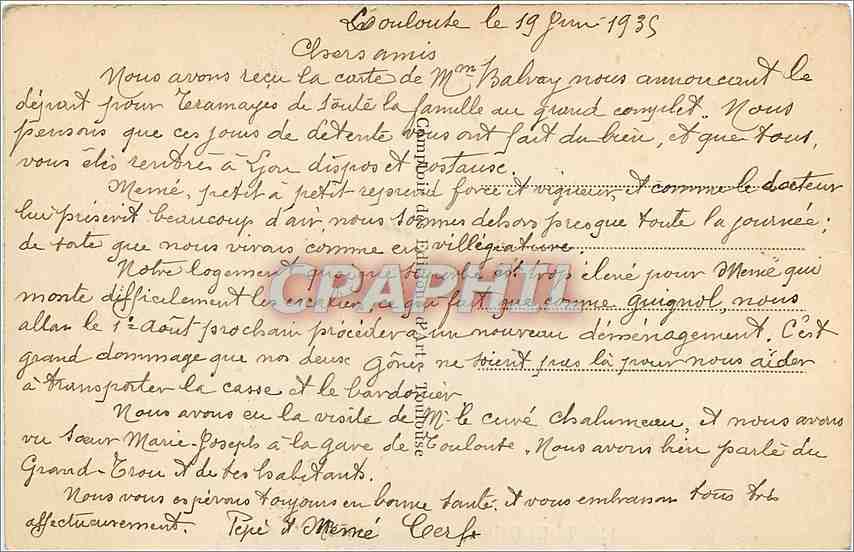 Toulouse le 19 Juin 1935
Chers amis
Nous avons reçu la carte de Mme Balvay nous annoncant le
départ pour Tramayes de toute la famille au grand complet. Nous
pensons que ces jours de détente vous ont fait du bien, et que tous,
vous êtes rentrés à Lyon dispos et costauds.
Memé, petit à petit reprend force et vigueur, et comme le docteur
lui préscrit beaucoup d'air, nous sommes dehors presque toute la journée;
de sorte que nous vivons comme en villégiature.
Notre logement quoique superbe est trop élevé pour Memé qui
monte difficilement les escaliers, ce qui fait que comme guignol, nous
allons le 1er Août prochain procéder à un nouveau déménagement. C'est
grand dommage que nos deux gônes ne soient pas là pour nous aider
à transporter la casse et le bardonier.
Nous avons eu la visite de Mr le curé Chalumeau, et nous avons
vu sœur Marie-Joseph à la gare de Toulouse. Nous avons bien parlé du
Grand-Trou et de ses habitants.
Nous vous espérons toujours en bonne santé et vous embrassons tous très
affectueusement. Pepé et Memé Cerf
Comptoir des Editions d'Arts, Toulouse
CPAPHIL